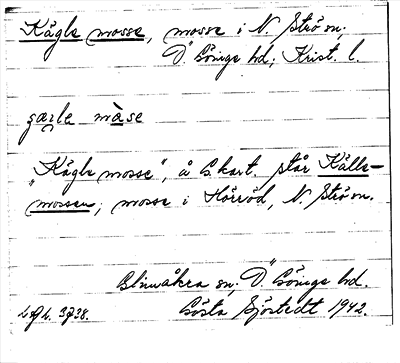 Kägle mosse, mosse i N. Strö sn,
Ö. Göinge hd, Krist. l.
gæzle màse
"Kägle mosse", å G. kart. står Källe-
mossen; mosse i Hörröd, N. Strö sn.
Glimåkra sn, Ö. Göinge hd.
Gösta Sjöstedt 1942.